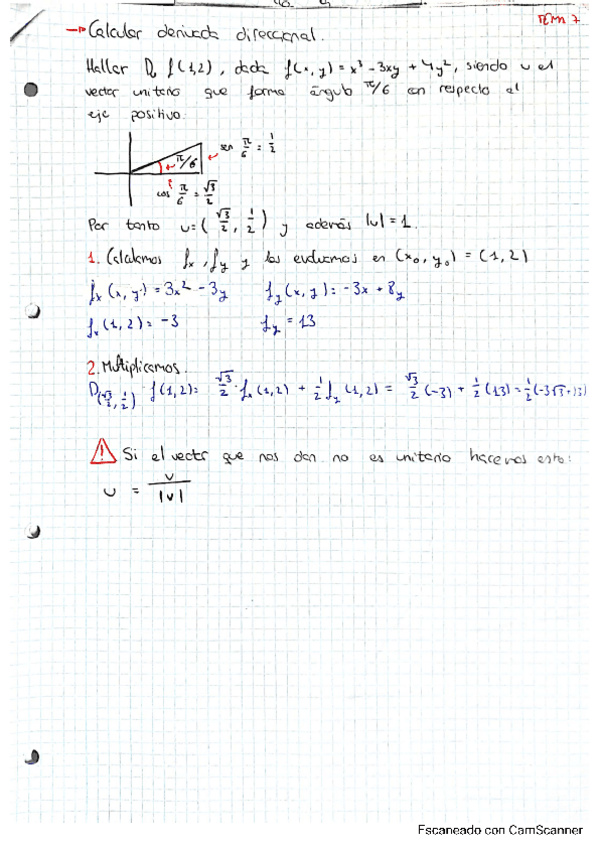 TEMA 7
→ Calcular derivada direccional.
Hallar Du f(1,2), dada f(x,y) = x³ - 3xy + 4y², siendo u el
vector unitario que forma ángulo π/6 con respecto al
eje positivo.
sen π/6 = 1/2
π/6
cos π/6 = √3/2
Por tanto u = (√3/2, 1/2) y además |u| = 1.
1. Calculamos fx, fy y los evaluamos en (x₀, y₀) = (1,2)
fx(x,y) = 3x² - 3y fy(x,y) = -3x + 8y
fx(1,2) = -3 fy = 13
2. Multiplicamos.
D(√3/2, 1/2) · f(1,2) = √3/2 · fx(1,2) + 1/2 fy(1,2) = √3/2 (-3) + 1/2 (13) = 1/2 (-3√3 + 13)
Si el vector que nos dan no es unitario hacemos esto:
u = v/|v|
Escaneado con CamScanner